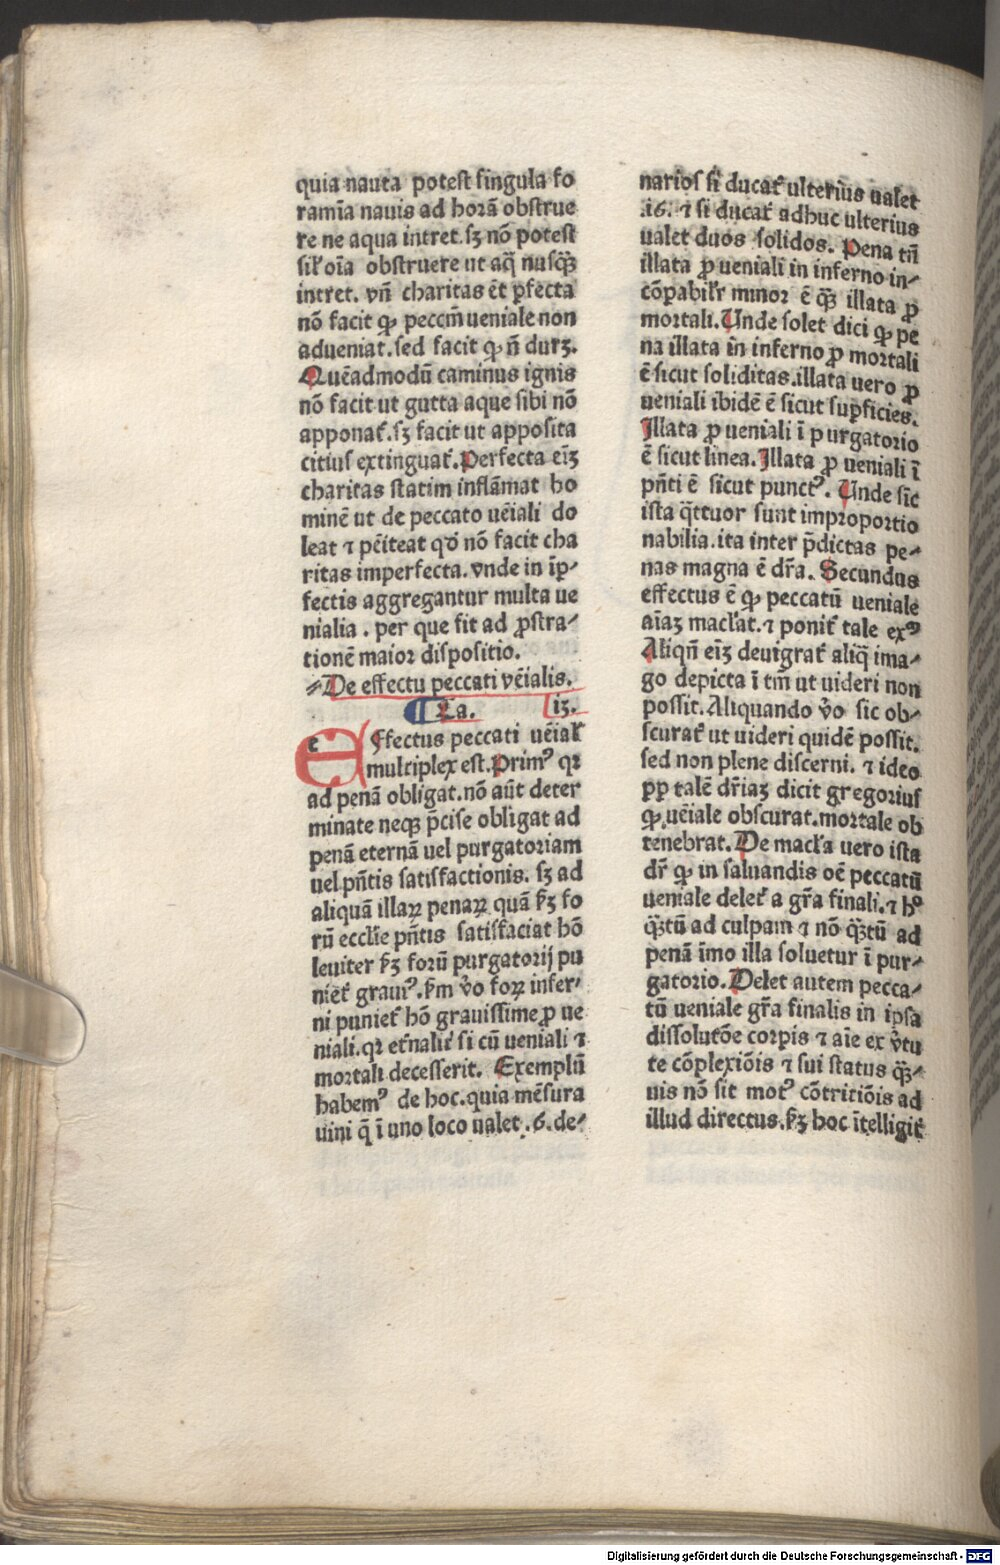 quia nauta potest singula fo
ramīa nauis ad horā obstrue
re ne aqua intret. sꝫ nō potest
sil̛ oīa obstruere ut aq̄ nusq̄ꝫ
intret. vn̄ charitas ēt ꝑfecta
nō facit ꝙ pecc̄m ueniale non
adueniat. sed facit ꝙ n̄ durꝫ.
Quēadmodū caminus ignis
nō facit ut gutta aque sibi nō
apponat̛. sꝫ facit ut apposita
citius extinguat̛. Perfecta eīꝫ
charitas statim inflāmat ho
minē ut de peccato uēiali do
leat ⁊ pēiteat qd̄ nō facit cha
ritas imperfecta. vnde in īp⸗
fectis aggregantur multa ue
nialia . per que fit ad ꝓstra⸗
tionē maior dispositio.
⸗De effectu peccati vēialis.
¶ Ca. iꝫ.
e Effectus peccati uēial̛
multiplex est. Primꝰ qꝛ
ad penā obligat. nō aūt deter
minate neqꝫ p̄cise obligat ad
penā eternā uel purgatoriam
uel pn̄tis satisfactionis. sꝫ ad
aliquā illaꝝ penaꝝ quā ẜꝫ fo
rū eccl̄ie pn̄tis satisfaciat hō
leuiter ẜꝫ forū purgatorij pu
niēt̛ grauiꝰ. ẜm v̄o foꝝ infer⸗
ni puniet̛ hō grauissime ꝓ ue
niali. qꝛ et̄nalit̛ si cū ueniali ⁊
mortali decesserit. Exemplū
habemꝰ de hoc. quia mēsura
uini q̄ ī uno loco ualet .6. de⸗
narios si ducat̛ ulterius ualet
.16. ⁊ si ducat̛ adhuc ulterius
ualet duos solidos. Pena tn̄
illata ꝓ ueniali in inferno in⸗
cōpabilr̛ minor ē q̄ꝫ illata ꝓ
mortali. Unde solet dici ꝙ pe
na illata in inferno ꝓ mortali
ē sicut soliditas. illata uero ꝓ
ueniali ibidē ē sicut suꝑficies.
Illata ꝓ ueniali ī purgatorio
ē sicut linea. Illata ꝓ ueniali ī
pn̄ti ē sicut punctꝰ. Unde sīc
ista q̄ttuor sunt improportio
nabilia. ita inter p̄dictas pe⸗
nas magna ē dr̄a. Secundus
effectus ē ꝙ peccatū ueniale
aīaꝫ macl̛at. ⁊ ponit̛ tale exᵐ
Aliqn̄ eīꝫ deuigrat̛ aliq̄ ima⸗
go depicta ī tm̄ ut uideri non
possit. Aliquando v̄o sic ob⸗
scurat̛ ut uideri quidē possit.
sed non plene discerni. ⁊ ideo
pp̄ talē dr̄iaꝫ dicit gregorius
ꝙ uēiale obscurat. mortale ob
tenebrat. De macl̛a uero ista
dr̄ ꝙ in saluandis oē peccatū
ueniale delet̛ a gr̄a finali. ⁊ hº
q̄ꝫtū ad culpam ⁊ nō q̄ꝫtū ad
penā īmo illa soluetur ī pur⸗
gatorio. Delet autem pecca⸗
tū ueniale gr̄a finalis in ipsa
dissolutōe corpis ⁊ aīe ex v̄tu
te cōplexiōis ⁊ sui status q̄ꝫ⸗
uis nō sit motꝰ cōtritiōis ad
illud directus. ẜꝫ hoc ītelligit̛
Digitalisierung gefördert durch die Deutsche Forschungsgemeinschaft - DFG